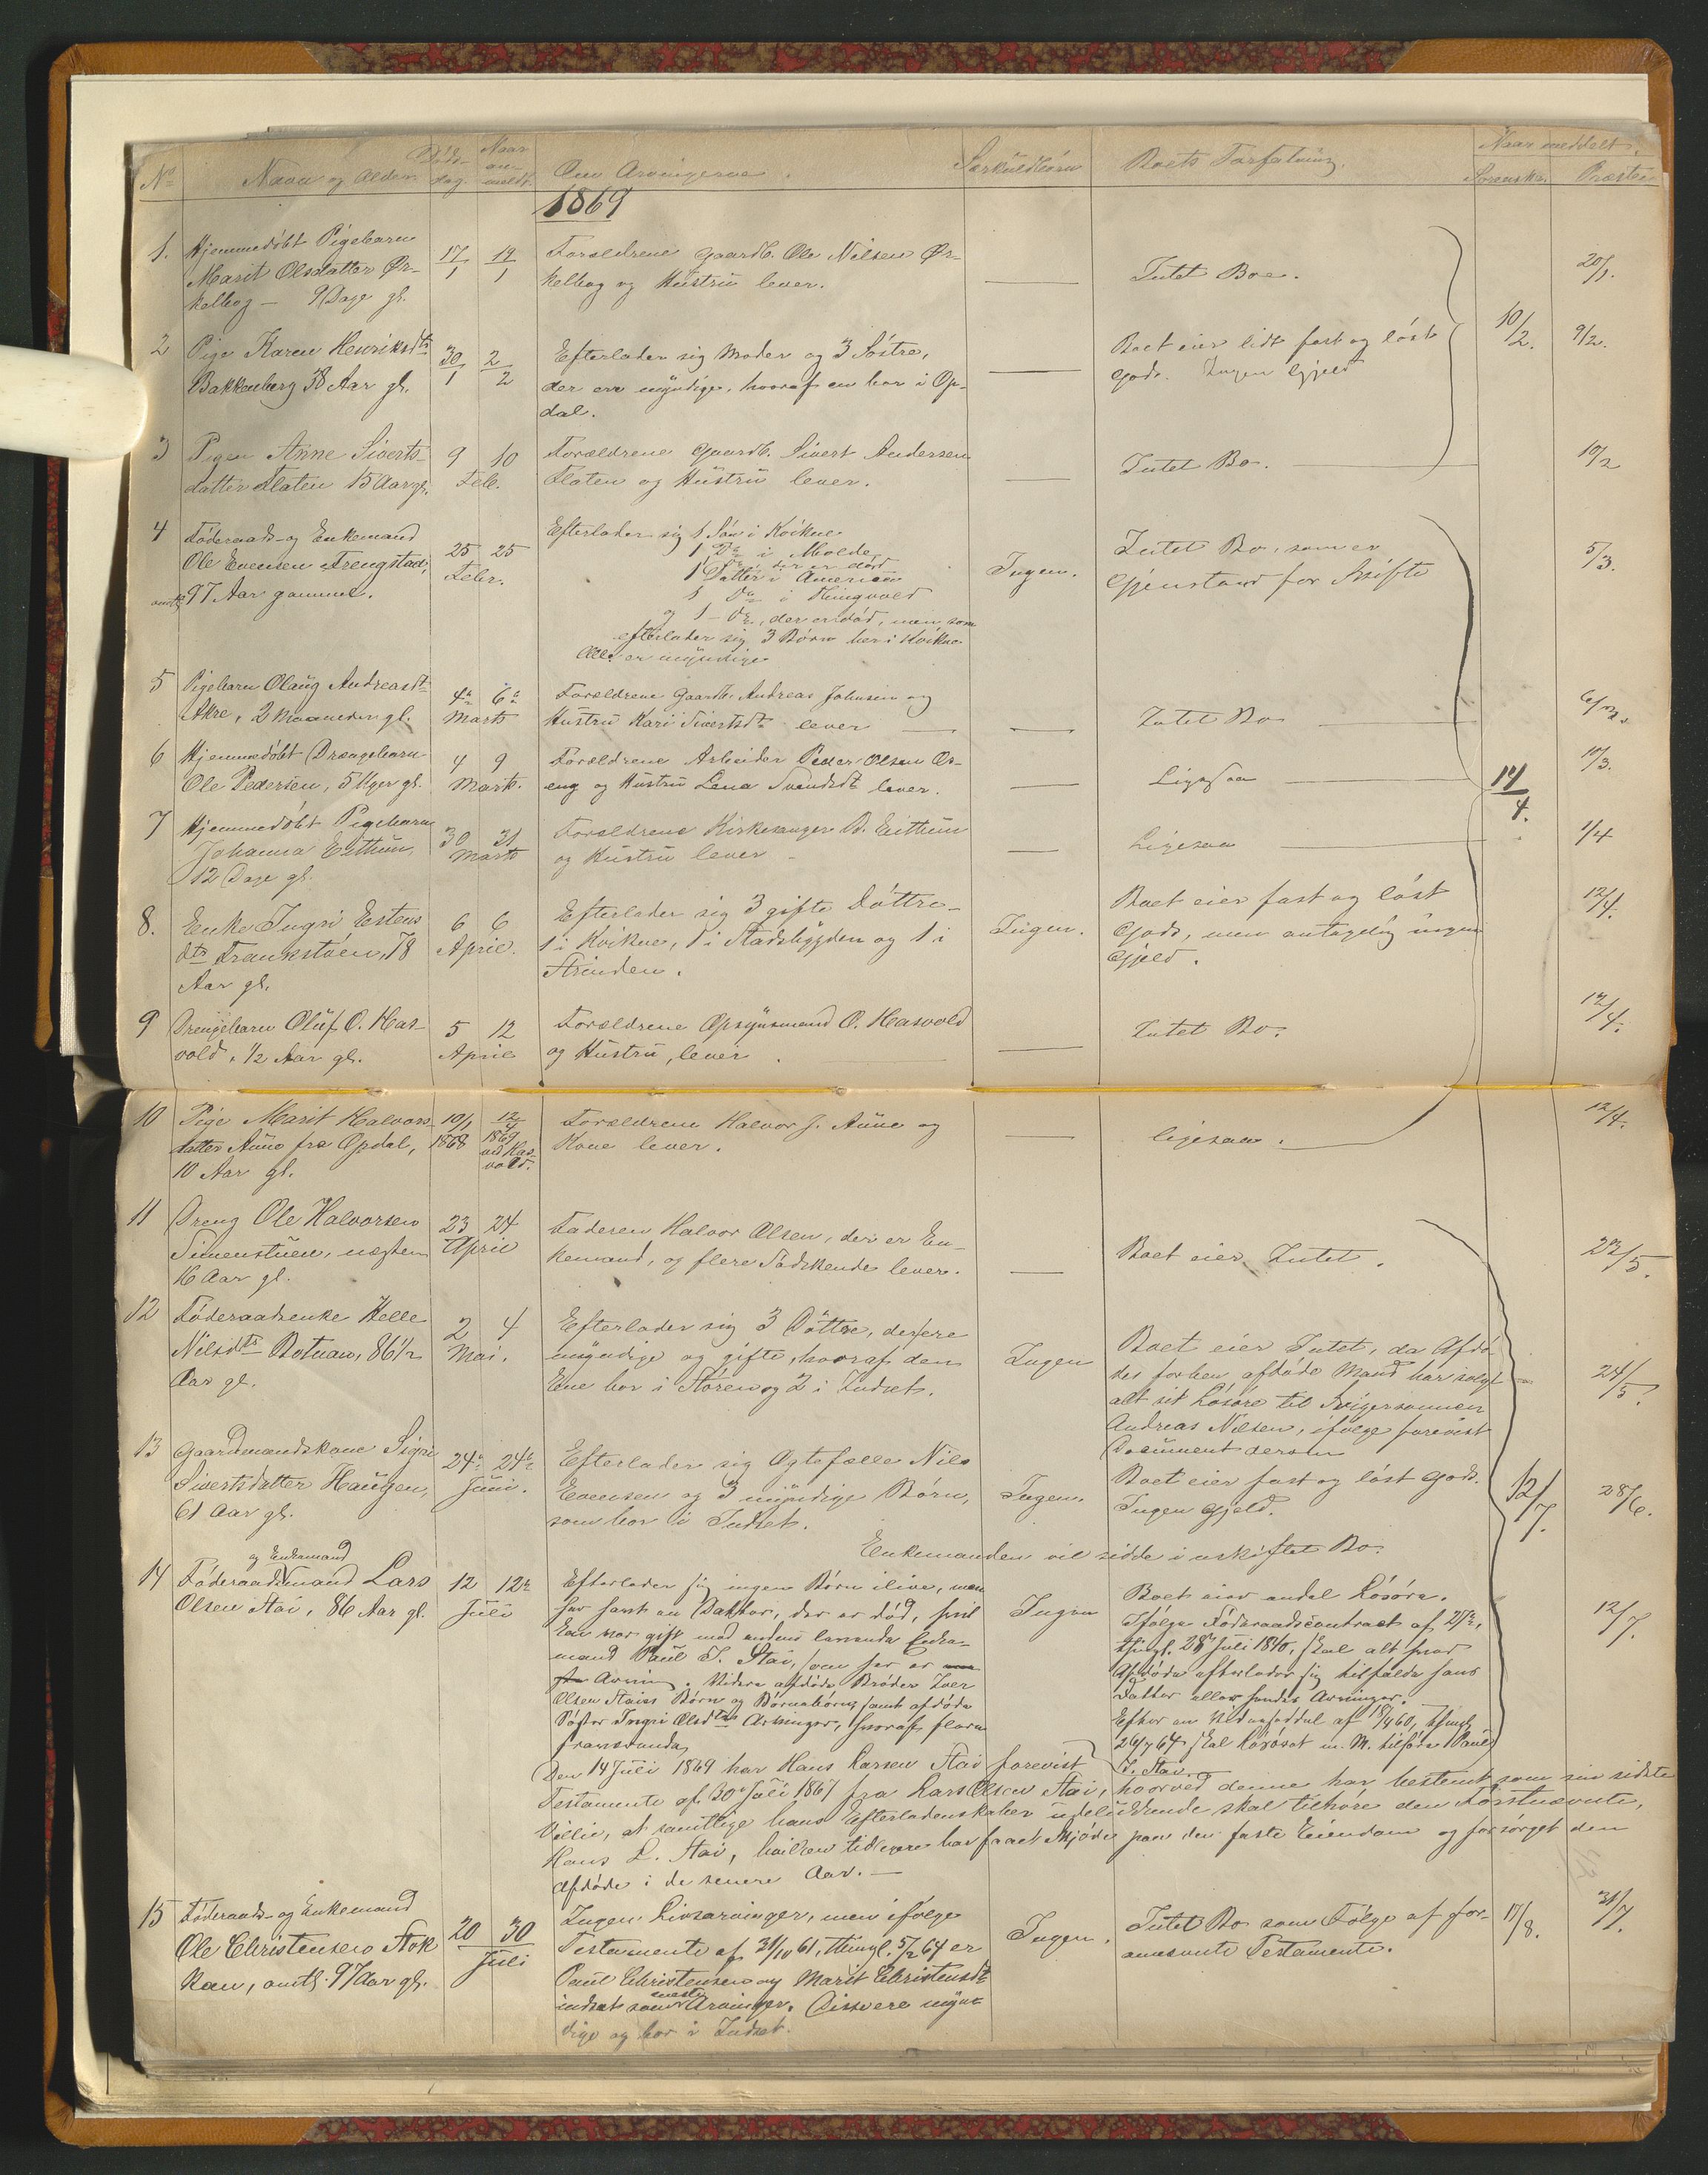 No Navn og Alder. Döds-dag. Naar an-meldt. Om Arvingerne. Særkuldbörn Boets Forfatning. Naar meddelt. Sorenskr. Præsten
1869
1. Hjemmedöbt Pigebarn
Marit Olsdatter Ør-
kelbog — 9 Dage gl.
17/1 19/1
Forældrene Gaardb. Ole Nilsen Ør-
kelbog og Hustru lever.
Intet Boe.
20/1.
2 Pige Karen Henriksdtr
Bakkenberg 38 Aar gl.
30/1 2/2
Efterlader sig Moder og 3 Söstre,
der ere myndige, hvoraf en bor i Op-
dal.
Boet eier lidt fast og löst
Gods. Ingen Gjeld
10/2. 9/2.
3 Pigen Anne Siverts-
datter Floten 15 Aar gl.
9 10
Feb.
Forældrene Gaardb. Sivert Andersen
Floten og Hustru lever.
Intet Bo.
10/2
4 Föderaads- og Enkemand
Ole Evensen Frengstad,
omtr. 97 Aar gammel.
25 25
Febr.
Efterlader sig 1 Sön i Kvikne
1 Do i Molde,
1 Do, der er död
1 Datter i Amerika
1 Do i Thingvold
og 1 - Do, der er död, men som
efterlader sig 3 Börn her i Kvikne.
Alle er myndige
Ingen.
Intet Bo, som er
Gjenstand for Skifte
5/3.
5 Pigebarn Olaug Andreasdt
Akre, 2 Maaneder gl.
4de 6te
Marts
Forældrene Gaardb. Andreas Johnsen og
Hustru Kari Sivertsdt lever
Intet Bo
6/3.
6 Hjemmedöbt Drengebarn
Ole Pedersen, 5 Uger gl.
4 9
Marts.
Forældrene Arbeider Peder Olsen Os-
eng og Hustru Lena Svendsdt lever.
Ligesaa
12/4. 10/3.
7 Hjemmedöbt Pigebarn
Johanna Eithun,
12 Dage gl.
30 31
Marts
Forældrene Kirkesanger B. Eithun
og Hustru lever
Ligesaa
1/4
8. Enke Ingri Estens
dtr Frankstöen, 78
Aar gl.
6 6
April.
Efterlader sig 3 gifte Döttre-
1 i Kvikne, 1 i Stadsbygden og 1 i
Strinden.
Ingen.
Boet eier fast og löst
Gods, men antagelig ingen
Gjeld.
12/4.
9 Drengebarn Oluf O. Has-
vold, 1/2 Aar gl.
5 12
April
Forældrene Opsynsmand O. Hasvold
og Hustru, lever.
Intet Bo.
12/4.
10 Pige Marit Halvors
datter Aune fra Opdal,
10 Aar gl.
10/1 1868 12/4 1869 ved Has-vold.
Forældrene Halvor J. Aune og
Kone lever.
ligesaa.
12/4.
11 Dreng Ole Halvorsen
Simenstuen, næsten
16 Aar gl.
23 24
April
Faderen Halvor Olsen, der er En-
kemand, og flere Södskende lever.
Boet eier Intet.
23/5.
12 Föderaadsenke Helle
Nilsdtr Botnan, 86 1/2
Aar gl.
2 4
Mai.
Efterlader sig 3 Döttre, der ere
myndige og gifte, hvoraf den
Ene bor i Stören og 2 i Indset.
Ingen
Boet eier Intet, da Afdö-
des forhen afdöde Mand har solgt
alt sit Lösöre til Svigersönnen
Andreas Nilsen, ifölge forevist
Document derom
24/5.
13 Gaardmandskone Sigri
Sivertsdatter Haugen,
61 Aar gl.
24de 24de
Juni.
Efterlader sig Ægtefælle Nils
Evensen og 3 myndige Börn,
som bor i Indset.
Ingen.
Boet eier fast og löst Gods.
Ingen Gjeld.
12/7. 28/6.
Enkemanden vil sidde i uskiftet Bo.
og Enkemand
14 Föderaadsmand Lars
Olsen Stai, 86 Aar gl.
12 12te
Juli
Efterlader sig ingen Börn ilive, men
har havt en Datter, der er död, hvil
ken var gift med endnu levende Enke-
mand Paul T. Stai, som her er
Arving. Videre afdöde Broder Iver
Olsen Stais Börn og Börnebörn, samt afdöde
Söster Ingri Olsdtrs Arvinger, hvoraf flere
fraværende
Ingen
Boet eier endel Lösöre.
Ifölge Föderaadscontract af 27de,
thingl. 28de Juli 1840, skal alt hvad
Afdöde efterlader sig tilfalde hans
Datter eller hendes Arvinger.
Efter en Vidnesseddel af 18/4 60, thingl.
26/7 64 skal Lösöret m. M. tilfalde Paul
T. Stai.
12/7.
Den 14 Juli 1869 har Hans Larsen Stai forevist
Testamente af 30te Juli 1867 fra Lars Olsen Stai, hvorved denne har bestemt som sin sidste
Villie, at samtlige hans Efterladenskaber udelukkende skal tilhöre den Förstnævnte,
Hans L. Stai, hvilken tidligere har faaet Skjöde paa den faste Eiendom og forsörget den
Afdöde i de senere Aar. —
15 Föderaads- og Enkemand
Ole Christensen Stok
kan, omtr. 97 Aar gl.
20 30
Juli
Ingen Livsarvinger, men ifölge
Testamente af 31/10 61, thingl. 5/2 64 er
Paul Christensen og Marit Christensdt
indsat som Arvinger. Disse ere myn-
dige og bor i Indset.
Ingen.
Intet Bo som Fölge af for-
anævnte Testamente.
17/8. 31/7.